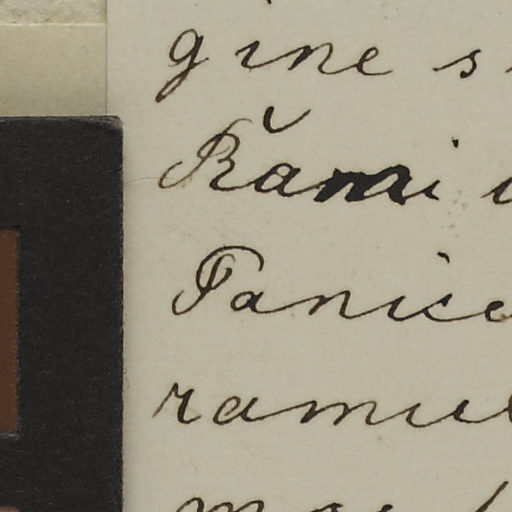 gine s
Rami
Panic
ramul